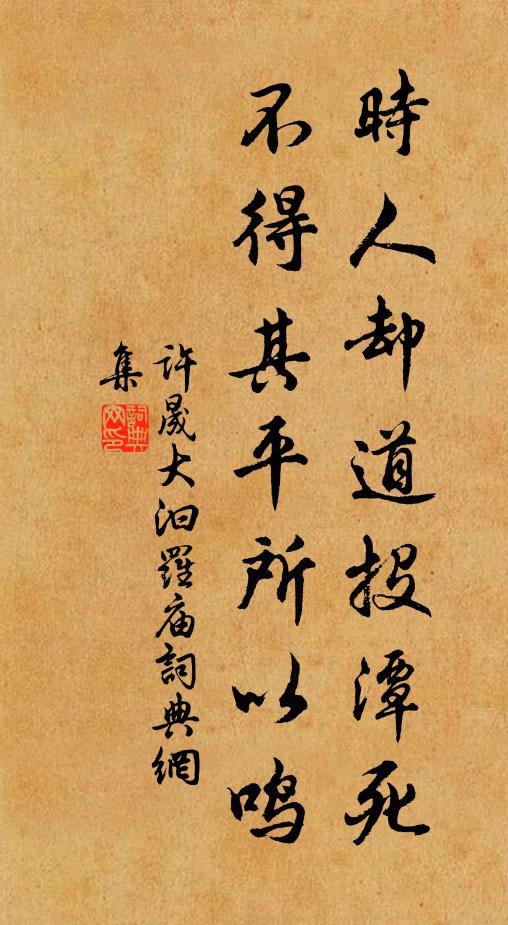 時人却道投潭死
不得其平所以鸣
许晟大汨羅庙詞典網
集
詞典
网印